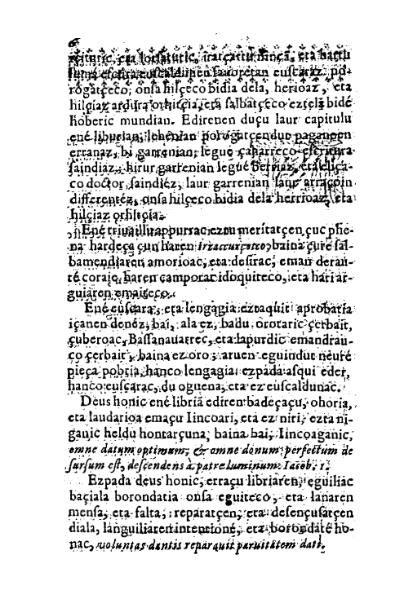 6
eta
eta euscaraz, po-
rogatçeco, onsa hilçeco bidia dela, herioaz, eta
hilçiaz ardura orhitçia, eta salbatçeco eztela bidé
hoberic mundian. Edirenen duçu laur capitulu
ené liburian, lehenian porogatçen dut paganoen
erranaz, bi garrenian, legué çaharreco escritura
saindiaz, hirur garrenian legué berriaz, eta eliça-
co doctor saindiez, laur garrenian laur arraçoin
differentéz, onsa hilçeco bidia dela herrioaz, eta
hilçiaz orhitcia.
Ené trivaillu appurrac eztu meritatçen, çuc phe-
na hardeçaçun haren iracurçeco, baina çure sal-
bamendiaren amorioac, eta desirac, eman deraut-
té coraje, haren camporat idoquiteco, eta hari ar-
guiaren emaiteco.
Ené euscara, eta lengagia eztaquit aprobatia
içanen denéz, bai, ala ez, badu orotaric çerbait,
çuberoac, Bassanauarrec, eta lapurdic emandrau-
co çerbait, baina ez oro, aruen eguindut neuré
pieça pobria, hanco lengagia ezpada asqui eder,
hanco euscarac, du oguena, eta ez euscaldunac.
Deus honic ené libriã ediren badeçaçu, ohoria,
eta laudarioa emaçu Iincoari, eta ez niri, ezta ni-
ganic heldu hontarçuna, baina bai, Iincoaganic,
omne datum optimum, & omne donum perfectum de
sursum est, descendens à patre luminum. Iacob. 1.
Ezpada deus honic, erraçu libriaren, eguiliac
baçiala borondatia onsa eguiteco, eta lanaren
mensa, eta falta, reparatçen, eta desençusatçen
diala, languiliaren intentioné, eta borondaté ho-
nac, voluntas dantis reparquit paruitatem dati.